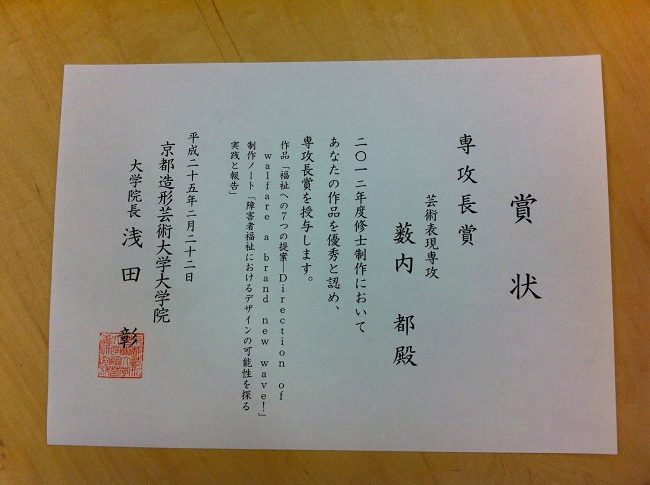 賞状
専攻長賞
芸術表現専攻
薮内 都殿
二〇一二年度修士制作において
あなたの作品を優秀と認め、
専攻長賞を授与します。
作品「福祉への7つの提案―Direction of
walfare a brand new wave!」
制作ノート「障害者福祉におけるデザインの可能性を探る
実践と報告」
平成二十五年二月二十二日
京都造形芸術大学大学院
大学院長 浅田 彰